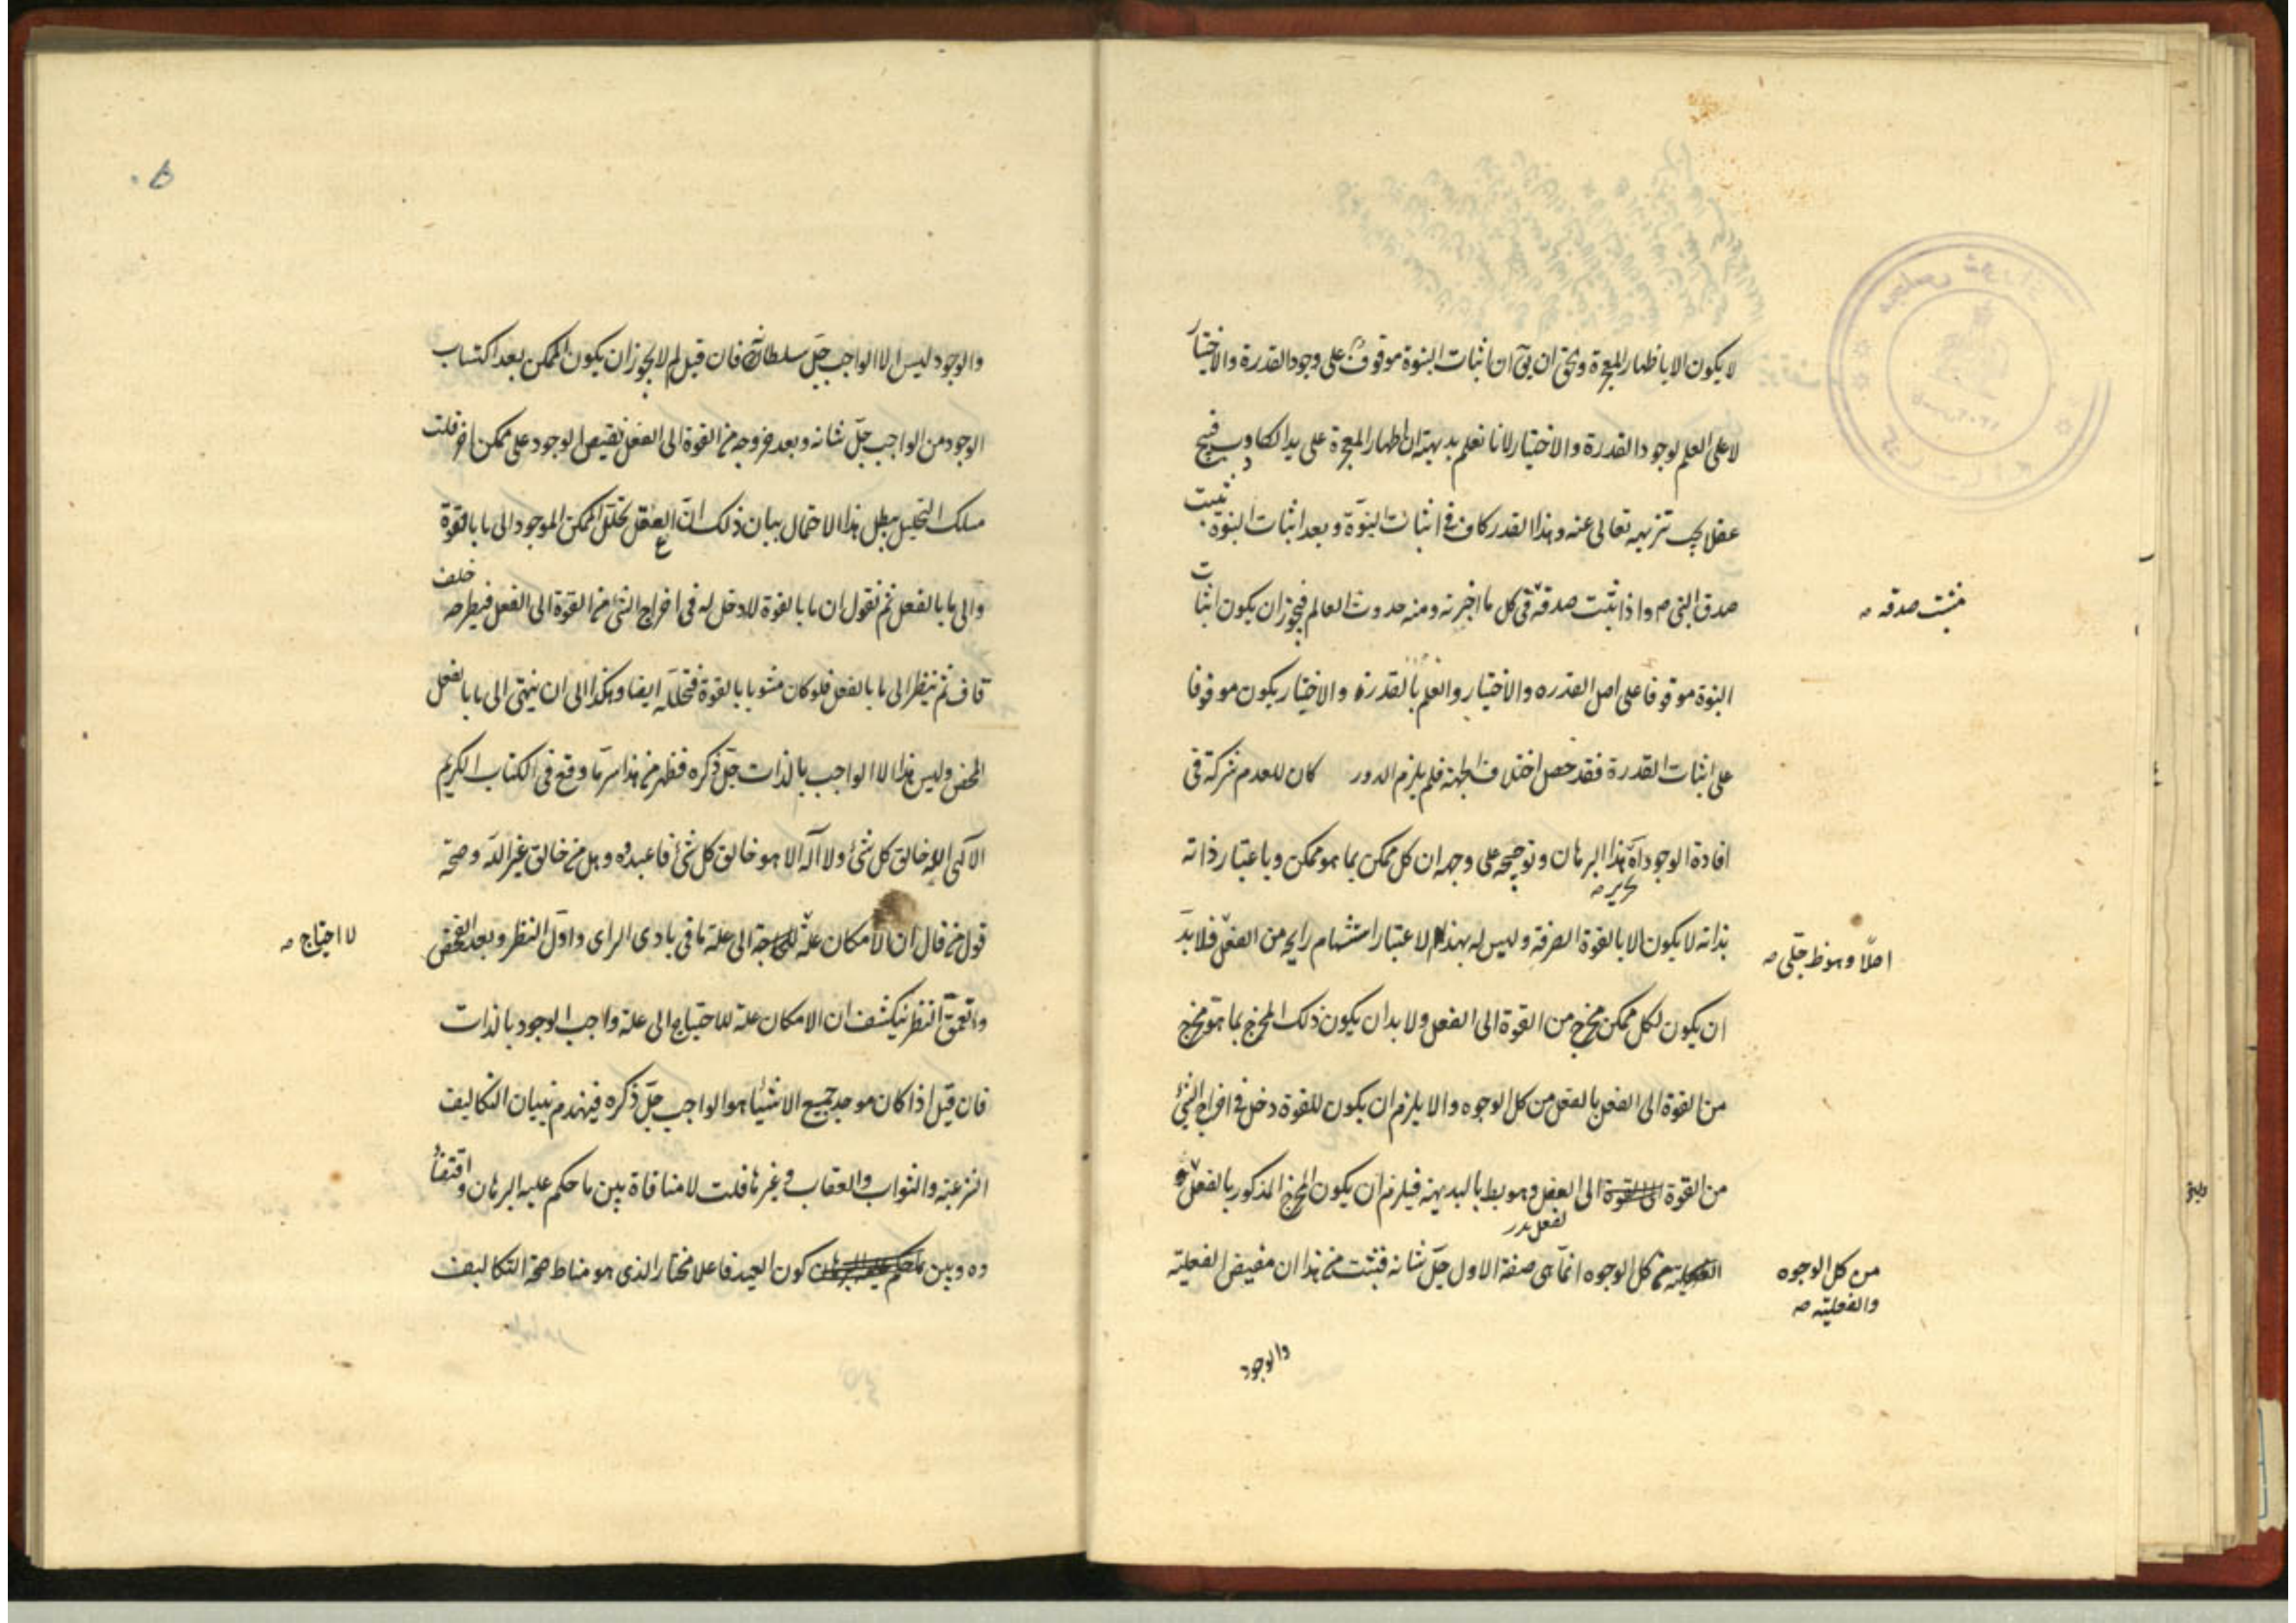 لا يكون الا باظهار المعجزة ويحق ان يق ان اثبات النبوة موقوف على وجود القدرة والاختيار
لا على العلم بوجود القدرة والاختيار لانا نعلم بديهة ان اظهار المعجزة على يد الكاذب قبيح
عقلا يجب تنزيهه تعالى عنه وهذا القدر كاف في اثبات النبوة وبعد اثبات النبوة يثبت
صدق النبي ص واذا ثبت صدقه في كل ما اخبر به ومنه حدوث العالم فيجوز ان يكون اثبات
النبوة موقوفا على اصل القدره والاختيار والعلم بالقدرة والاختيار يكون موقوفا
على اثبات القدرة فقد حصل اختلاف الجهة فلم يلزم الدور كان للعدم شركة في
افادة الوجود آه هذا البرهان وتوضيحه على وجه ان كل ممكن بما هو ممكن وباعتبار ذاته
تحريره
بذاته لا يكون الا بالقوة الصرفة وليس له بهذا الاعتبار استشمام رايحه من الفعل فلا بد
ان يكون لكل ممكن مخرج من القوة الى الفعل ولا بد ان يكون ذلك المخرج بما هو مخرج
من القوة الى الفعل بالفعل من كل الوجوه والا يلزم ان يكون للقوة دخل في اخراج الشئ
من القوة الى القوة الى الفعل وهو بط بالبديهة فيلزم ان يكون المخرج المذكور بالفعل و
الفعلية من كل الوجوه انما هى صفة الاول جل شانه فثبت من هذا ان مفيض الفعلية
والوجود
فيثبت صدقه
اصلا وهو ظ جلى
من كل الوجوه
والفعلية
والوجود ليس الا الواجب جل سلطانه فان قيل لم لا يجوز ان يكون الممكن بعد اكتساب
الوجود من الواجب جل شانه وبعد خروجه من القوة الى الفعل يفيض الوجود على ممكن اخر قلت
مسلك التحليل يبطل هذا الاحتمال بيان ذلك ان العقل يحلل الممكن الموجود الى ما بالقوة
والى ما بالفعل ثم نقول ان ما بالقوة لا دخل له في اخراج الشئ من القوة الى الفعل فيطرحه خلف
قاف ثم ينظر الى ما بالفعل فلو كان مشوبا بالقوة فتحلله ايضا وهكذا الى ان ينتهى الى ما بالفعل
المحض وليس هذا الا الواجب بالذات جل ذكره فظهر من هذا سر ما وقع في الكتاب الكريم
الآلهى الله خالق كل شئ ولا آله الا هو خالق كل شئ فاعبدوه وهل من خالق غير الله وصحة
قول من قال ان الامكان علة للحاجة الى علة ما في بادى الراى واول النظر وبعد الفحص
وتعمق النظر ينكشف ان الامكان علة للاحتياج الى علة واجب الوجود بالذات
فان قيل اذا كان موجد جميع الاشيا هو الواجب جل ذكره فينهدم بنيان التكاليف
الشرعية والثواب والعقاب وغيرها قلت لا منافاة بين ما حكم عليه البرهان واقتضا
ه وبين ما حكم عليه البرهان كون العبد فاعلا مختار الذى هو مناط صحة التكاليف
لا احتياج